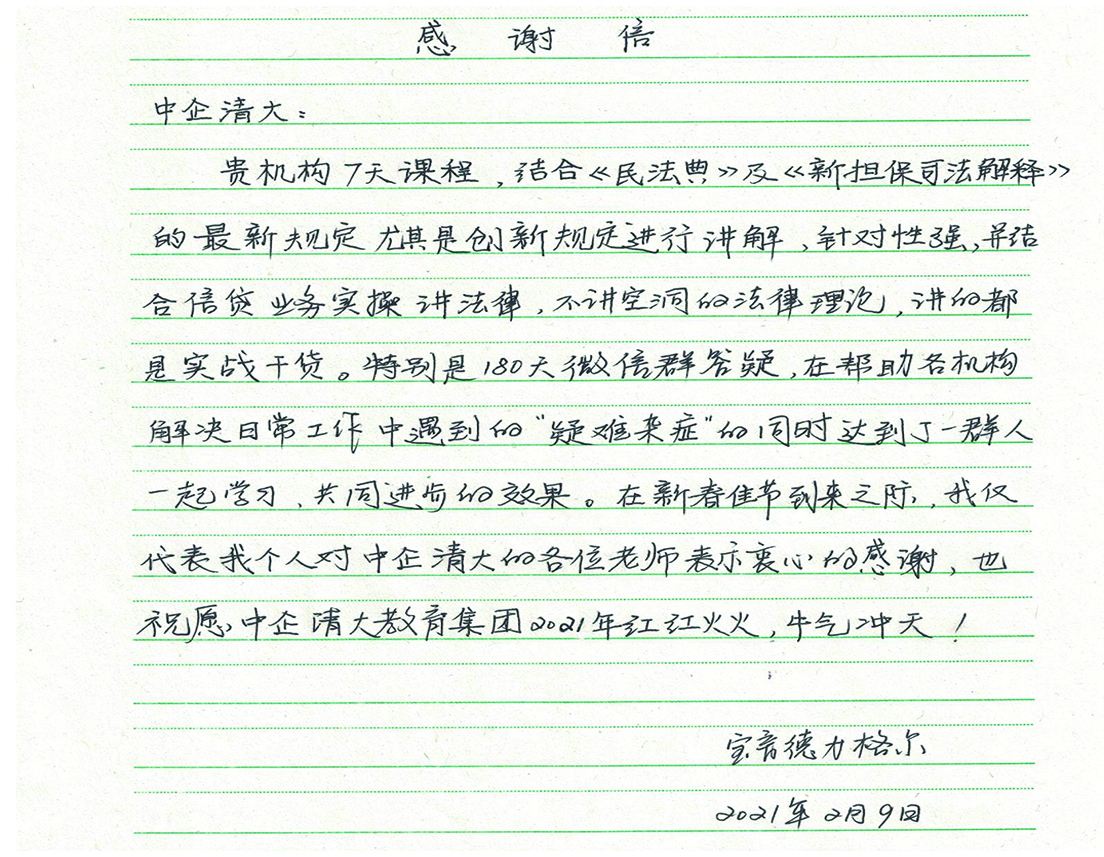 感谢信
中企清大：
贵机构7天课程，结合《民法典》及《新担保司法解释》
的最新规定尤其是创新规定进行讲解，针对性强，并结
合信贷业务实操讲法律，不讲空洞的法律理论，讲的都
是实战干货。特别是180天微信群答疑，在帮助各机构
解决日常工作中遇到的“疑难杂症”的同时达到了一群人
一起学习、共同进步的效果。在新春佳节到来之际，我仅
代表我个人对中企清大的各位老师表示衷心的感谢，也
祝愿中企清大教育集团2021年红红火火，牛气冲天！
宝音德力格尔
2021年2月9日